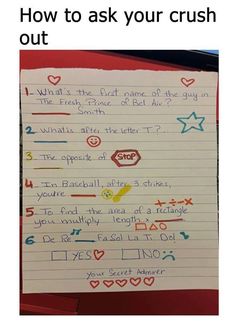 How to ask your crush
out
1. What's the first name of the guy in
The Fresh Prince of Bel Air?
Smith
2 What is after the letter T?.
3. The opposite of STOP
4. In Baseball, after 3 strikes,
you're
5. To find the area of a recTangle
you multiply length x
6 Do Re Fa Sol La Ti Do!
YES NO
Your Secret Admirer